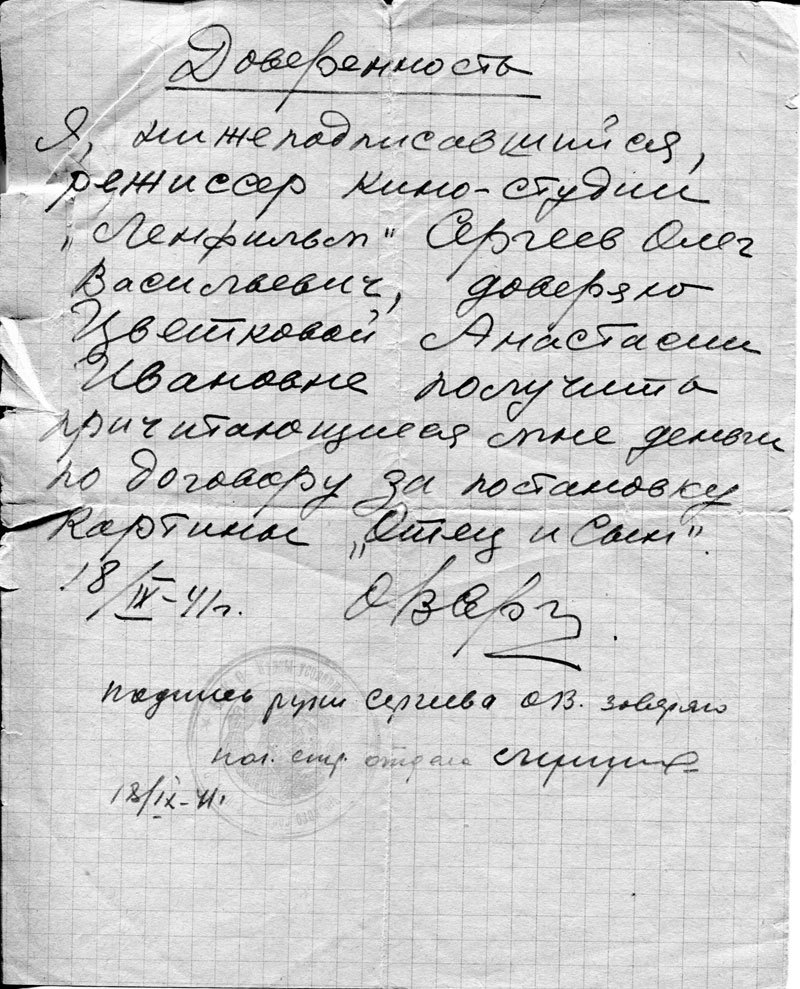 Доверенность
Я, нижеподписавшийся,
режиссер кино-студии
„Ленфильм" Сергеев Олег
Васильевич, доверяю
Цветковой Анастасии
Ивановне получить
причитающиеся мне деньги
по договору за постановку
картины „Отец и сын".
18/IX-41г. ОВСерг
подпись руки Сергеева О.В. заверяю
нач. стр. отдела
18/IX-41.